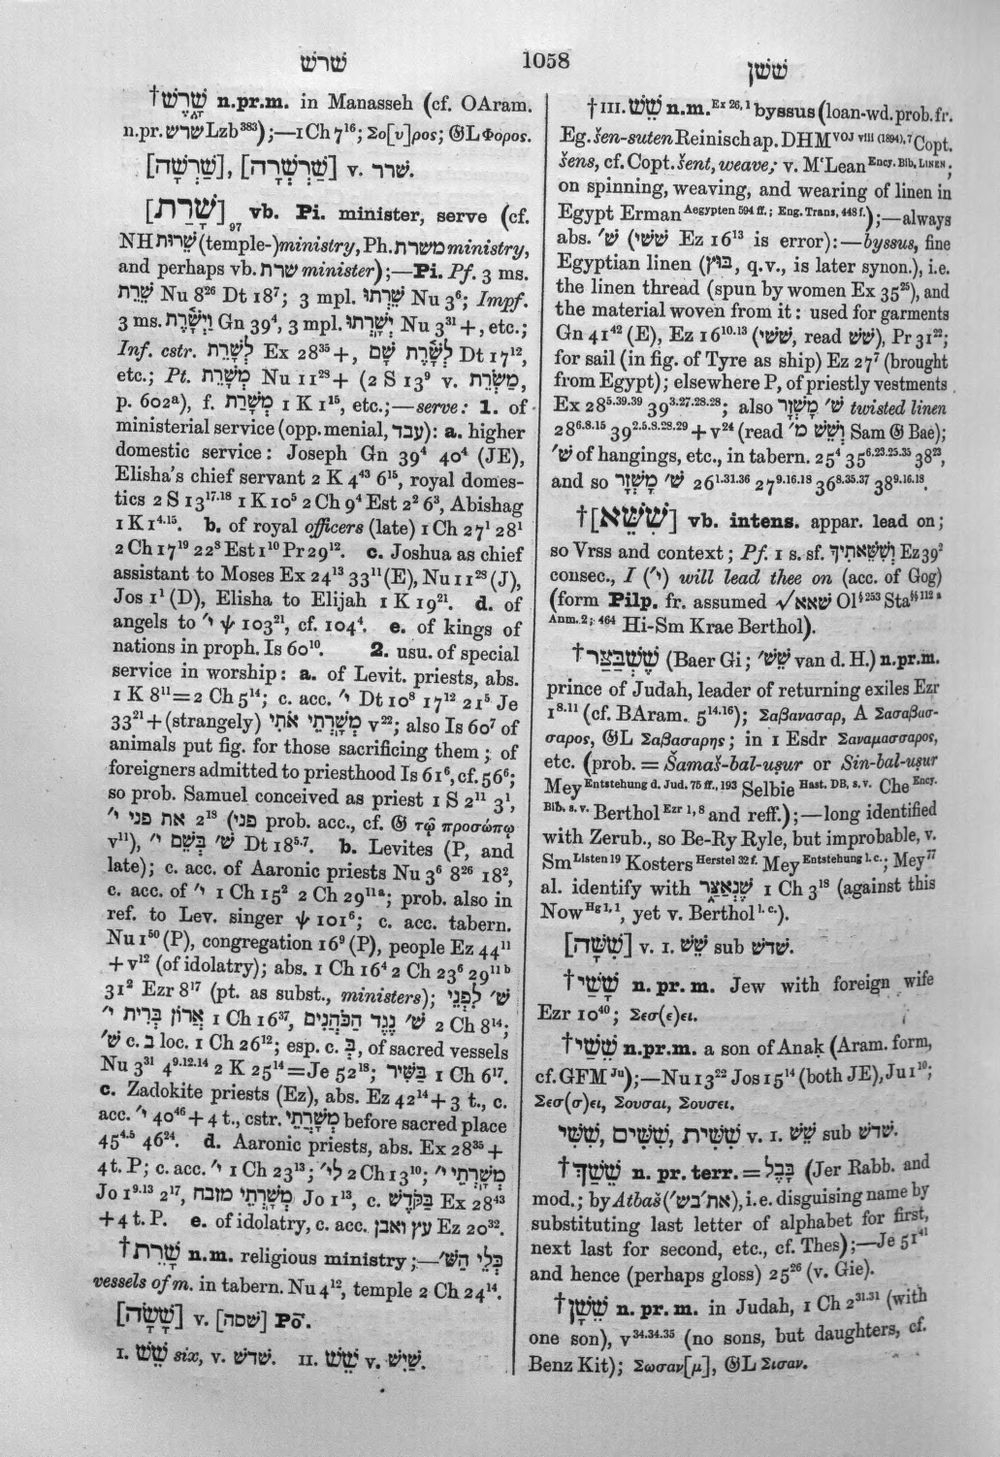 שרש
1058
ששן
†שֶׁ֫רֶשׁ n.pr.m. in Manasseh (cf. OAram.
n.pr. שרש Lzb³⁸³);—1 Ch 7¹⁶; Σο[υ]ρος; 𝔊L Φορος.
[שַׁרְשָׁה], [שַׁרְשְׁרָה] v. שרר.
[שָׁרַת]₉₇ vb. Pi. minister, serve (cf.
NH שֵׁרוּת (temple-)ministry, Ph. משרת ministry,
and perhaps vb. שרת minister);—Pi. Pf. 3 ms.
שֵׁרֵת Nu 8²⁶ Dt 18⁷; 3 mpl. שֵׁרְתוּ Nu 3⁶; Impf.
3 ms. וַיְשָׁ֫רֶת Gn 39⁴, 3 mpl. יְשָׁרְתוּ Nu 3³¹ +, etc.;
Inf. cstr. לְשָׁרֵת Ex 28³⁵ +, לְשָׁ֫רֶת שָׁם Dt 17¹²,
etc.; Pt. מְשָׁרֵת Nu 11²⁸ + (2 S 13⁹ v. מַשְׂרֵת,
p. 602ᵃ), f. מְשָׁרַת 1 K 1¹⁵, etc.;—serve: 1. of
ministerial service (opp. menial, עבד): a. higher
domestic service: Joseph Gn 39⁴ 40⁴ (JE),
Elisha's chief servant 2 K 4⁴³ 6¹⁵, royal domes-
tics 2 S 13¹⁷·¹⁸ 1 K 10⁵ 2 Ch 9⁴ Est 2² 6³, Abishag
1 K 1⁴·¹⁵. b. of royal officers (late) 1 Ch 27¹ 28¹
2 Ch 17¹⁹ 22⁸ Est 1¹⁰ Pr 29¹². c. Joshua as chief
assistant to Moses Ex 24¹³ 33¹¹ (E), Nu 11²⁸ (J),
Jos 1¹ (D), Elisha to Elijah 1 K 19²¹. d. of
angels to י׳ ψ 103²¹, cf. 104⁴. e. of kings of
nations in proph. Is 60¹⁰. 2. usu. of special
service in worship: a. of Levit. priests, abs.
1 K 8¹¹=2 Ch 5¹⁴; c. acc. י׳ Dt 10⁸ 17¹² 21⁵ Je
33²¹ + (strangely) מְשָׁרְתֵי אֹתִי v²²; also Is 60⁷ of
animals put fig. for those sacrificing them; of
foreigners admitted to priesthood Is 61⁶, cf. 56⁶;
so prob. Samuel conceived as priest 1 S 2¹¹ 3¹,
את פני י׳ 2¹⁸ (פני prob. acc., cf. 𝔊 τῷ προσώπῳ
v¹¹), שׁ׳ בְּשֵׁם י׳ Dt 18⁵·⁷. b. Levites (P, and
late); c. acc. of Aaronic priests Nu 3⁶ 8²⁶ 18²,
c. acc. of י׳ 1 Ch 15² 2 Ch 29¹¹ᵃ; prob. also in
ref. to Lev. singer ψ 101⁶; c. acc. tabern.
Nu 1⁵⁰ (P), congregation 16⁹ (P), people Ez 44¹¹
+v¹² (of idolatry); abs. 1 Ch 16⁴ 2 Ch 23⁶ 29¹¹ᵇ
31² Ezr 8¹⁷ (pt. as subst., ministers); שׁ׳ לִפְנֵי
אֲרוֹן בְּרִית י׳ 1 Ch 16³⁷, שׁ׳ נֶגֶד הַכֹּהֲנִים 2 Ch 8¹⁴;
שׁ׳ c. ב loc. 1 Ch 26¹²; esp. c. בְּ, of sacred vessels
Nu 3³¹ 4⁹·¹²·¹⁴ 2 K 25¹⁴=Je 52¹⁸; בַּשִּׁיר 1 Ch 6¹⁷.
c. Zadokite priests (Ez), abs. Ez 42¹⁴ + 3 t., c.
acc. י׳ 40⁴⁶ + 4 t., cstr. מְשָׁרְתֵי before sacred place
45⁴·⁵ 46²⁴. d. Aaronic priests, abs. Ex 28³⁵ +
4 t. P; c. acc. י׳ 1 Ch 23¹³; לי׳ 2 Ch 13¹⁰; מְשָׁרְתֵי י׳
Jo 1⁹·¹³ 2¹⁷, מְשָׁרְתֵי מזבח Jo 1¹³, c. בַּקֹּדֶשׁ Ex 28⁴³
+ 4 t. P. e. of idolatry, c. acc. עץ ואבן Ez 20³².
†שָׁרֵת n.m. religious ministry;—כְּלֵי הַשּׁ׳
vessels of m. in tabern. Nu 4¹², temple 2 Ch 24¹⁴.
[שָׁשָׂה] v. [שסה] Pō.
I. שֵׁשׁ six, v. שׁדשׁ. II. שֵׁשׁ v. שַׁיִשׁ.
†III. שֵׁשׁ n.m. Ex 26, 1 byssus (loan-wd. prob. fr.
Eg. šen-suten Reinisch ap. DHM VOJ viii (1894), 7 Copt.
šens, cf. Copt. šent, weave; v. MᶜLean Ency. Bib. LINEN;
on spinning, weaving, and wearing of linen in
Egypt Erman Aegypten 594 ff.; Eng. Trans. 448 f.);—always
abs. שׁ׳ (ששי Ez 16¹³ is error):—byssus, fine
Egyptian linen (בּוּץ, q.v., is later synon.), i.e.
the linen thread (spun by women Ex 35²⁵), and
the material woven from it: used for garments
Gn 41⁴² (E), Ez 16¹⁰·¹³ (ששי, read שש), Pr 31²²;
for sail (in fig. of Tyre as ship) Ez 27⁷ (brought
from Egypt); elsewhere P, of priestly vestments
Ex 28⁵·³⁹·³⁹ 39³·²⁷·²⁸·²⁸; also שׁ׳ מָשְׁזָר twisted linen
28⁶·⁸·¹⁵ 39²·⁵·⁸·²⁸·²⁹ + v²⁴ (read וְשֵׁשׁ מ׳ Sam 𝔊 Bae);
שׁ׳ of hangings, etc., in tabern. 25⁴ 35⁶·²³·²⁵·³⁵ 38²³,
and so שׁ׳ מָשְׁזָר 26¹·³¹·³⁶ 27⁹·¹⁶·¹⁸ 36⁸·³⁵·³⁷ 38⁹·¹⁶·¹⁸.
†[שִׁשֵּׁא] vb. intens. appar. lead on;
so Vrss and context; Pf. 1 s. sf. וְשִׁשֵּׁאתִיךָ Ez 39²
consec., I (י׳) will lead thee on (acc. of Gog)
(form Pilp. fr. assumed √שאא Ol § 253 Sta §§ 112 a
Anm. 2; 464 Hi-Sm Krae Berthol).
†שֵׁשְׁבַּצַּר (Baer Gi; שֵׁשׁ׳ van d. H.) n.pr.m.
prince of Judah, leader of returning exiles Ezr
1⁸·¹¹ (cf. BAram. 5¹⁴·¹⁶); Σαβανασαρ, A Σασαβασ-
σαρος, 𝔊L Σαβασαρης; in 1 Esdr Σαναμασσαρος,
etc. (prob. = Šamaš-bal-uṣur or Sin-bal-uṣur
Mey Entstehung d. Jud. 75 ff., 193 Selbie Hast. DB, s.v. Che Ency.
Bib. s.v. Berthol Ezr 1, 8 and reff.);—long identified
with Zerub., so Be-Ry Ryle, but improbable, v.
Sm Listen 19 Kosters Herstel 32 f. Mey Entstehung l.c.; Mey 77
al. identify with שֶׁנְאַצַּר 1 Ch 3¹⁸ (against this
Now Hg 1, 1, yet v. Berthol l.c.).
[שִׁשָּׁה] v. I. שֵׁשׁ sub שׁדשׁ.
†שָׁשַׁי n. pr. m. Jew with foreign wife
Ezr 10⁴⁰; Σεσ(ε)ει.
†שֵׁשַׁי n.pr.m. a son of Anaḳ (Aram. form,
cf. GFM Ju);—Nu 13²² Jos 15¹⁴ (both JE), Ju 1¹⁰;
Σεσ(σ)ει, Σουσαι, Σουσει.
שִׁשִּׁי, שִׁשִּׁים, שִׁשִּׁית v. I. שֵׁשׁ sub שׁדשׁ.
†שֵׁשַׁךְ n. pr. terr. = בָּבֶל (Jer Rabb. and
mod.; by Atbaš (את׳בש׳), i.e. disguising name by
substituting last letter of alphabet for first,
next last for second, etc., cf. Thes);—Je 51⁴¹
and hence (perhaps gloss) 25²⁶ (v. Gie).
†שֵׁשָׁן n. pr. m. in Judah, 1 Ch 2³¹·³¹ (with
one son), v³⁴·³⁴·³⁵ (no sons, but daughters, cf.
Benz Kit); Σωσαν[μ], 𝔊L Σισαν.